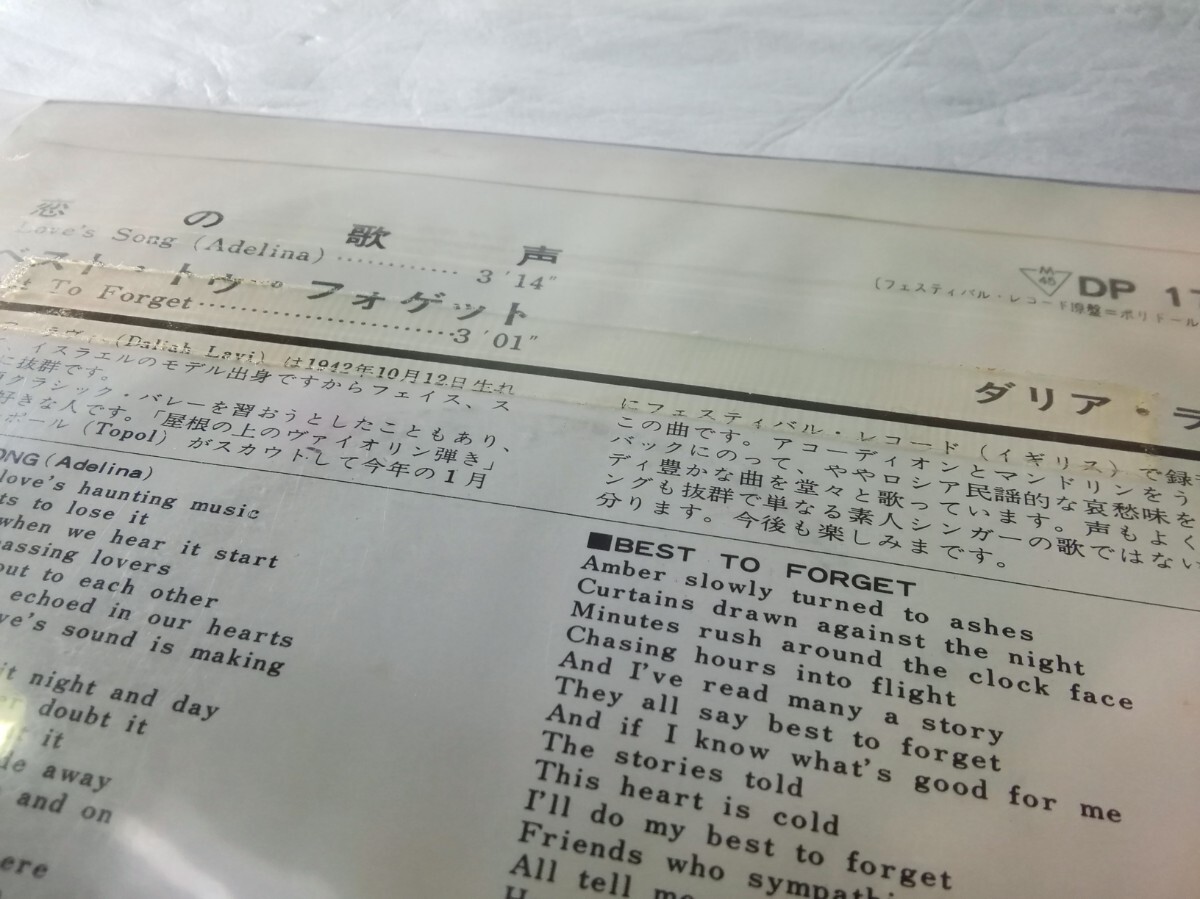 恋の歌声
Love's Song (Adelina)............ 3′14″
ベスト・トゥ・フォゲット
To Forget........................3′01″
M
45
DP 17
(フェスティバル・レコード原盤=ポリドール
ダリア・ラ
(Daliah Lavi) は1942年10月12日生れ
、イスラエルのモデル出身ですからフェイス、ス
に抜群です。
クラシック・バレーを習おうとしたこともあり、
好きな人です。「屋根の上のヴァイオリン弾き」
ポール (Topol) がスカウトして今年の1月
にフェスティバル・レコード (イギリス) で録
この曲です。アコーディオンとマンドリンをう
バックにのって、ややロシア民謡的な哀愁味を
ディ豊かな曲を堂々と歌っています。声もよく
ングも抜群で単なる素人シンガーの歌ではない
分ります。今後も楽しみまです。
ONG (Adelina)
love's haunting music
ts to lose it
when we hear it start
passing lovers
out to each other
echoed in our hearts
ve's sound is making
it night and day
doubt it
it
away
and on
ere
■BEST TO FORGET
Amber slowly turned to ashes
Curtains drawn against the night
Minutes rush around the clock face
Chasing hours into flight
And I've read many a story
They all say best to forget
And if I know what's good for me
The stories told
This heart is cold
I'll do my best to forget
Friends who sympathi
All tell me